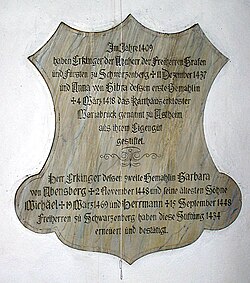 Im Jahre 1409
haben Erkinger der Ahnherr der Freiherren Grafen
und Fürsten zu Schwarzenberg + 11 Dezember 1437
und Anna von Bibra dessen erste Gemahlin
+ 4 März 1418 das Karthauserkloster
Mariabruck genannt zu Astheim
aus ihrem Eigengut
gestiftet.
Herr Erkinger dessen zweite Gemahlin Barbara
von Abensberg + 2 November 1448 und seine ältesten Söhne
Michael + 19 März 1469 und Herrmann + 15 September 1448
Freiherren zu Schwarzenberg haben diese Stiftung 1434
erneuert und bestätigt.